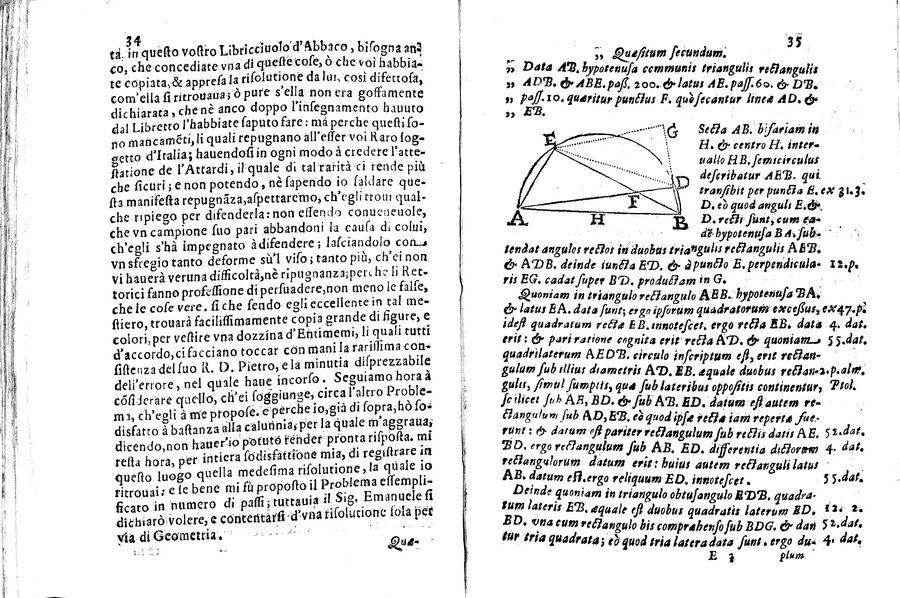 34
ta, in questo vostro Libricciuolo d'Abbaco, bisogna an-
co, che concediate vna di queste cose, ò che voi habbia-
te copiata, & appresa la risolutione da lui, così difettosa,
com'ella si ritrouaua; ò pure s'ella non era goffamente
dichiarata, che nè anco doppo l'insegnamento hauuto
dal Libretto l'habbiate saputo fare: mà perche questi so-
no mancamẽti, li quali repugnano all'esser voi Raro sog-
getto d'Italia; hauendosi in ogni modo à credere l'atte-
statione de l'Attardi, il quale di tal rarità ci rende più
che sicuri; e non potendo, nè sapendo io saldare que-
sta manifesta repugnãza, aspettaremo, ch'egli troui qual-
che ripiego per difenderla: non essendo conueneuole,
che vn campione suo pari abbandoni la causa di colui,
ch'egli s'hà impegnato à difendere; lasciandolo con
vn sfregio tanto deforme sù'l viso; tanto più, ch'ei non
vi hauerà veruna difficoltà, nè ripugnanza; perche li Ret-
torici fanno professione di persuadere, non meno le false,
che le cose vere. si che sendo egli eccellente in tal me-
stiero, trouarà facilissimamente copia grande di figure, e
colori, per vestire vna dozzina d'Entimemi, li quali tutti
d'accordo, ci facciano toccar con mani la rarissima con-
sistenza del suo R. D. Pietro, e la minutia disprezzabile
dell'errore, nel quale haue incorso. Seguiamo hora à
cõsiderare quello, ch'ei soggiunge, circa l'altro Proble-
ma, ch'egli à me propose. e perche io, già di sopra, hò so-
disfatto à bastanza alla calunnia, per la quale m'aggraua,
dicendo, non hauer'io potuto render pronta risposta. mi
resta hora, per intiera sodisfattione mia, di registrare in
questo luogo quella medesima risolutione, la quale io
ritrouai: e se bene mi fù proposto il Problema essempli-
ficato in numero di passi; tuttauia il Sig. Emanuele si
dichiarò volere, e contentarsi d'vna risolutione sola per
via di Geometria.
Quæ-
35
„ Quæsitum secundum.
„ Data AB. hypotenusa communis triangulis rectangulis
„ ADB. & ABE. pass. 200. & latus AE. pass. 60. & DB.
„ pass. 10. quæritur punctus F. quò secantur lineæ AD. &
„ EB.
E G D F A H B
Secta AB. bifariam in
H. & centro H. inter-
uallo HB. semicirculus
describatur AEB. qui
transibit per puncta E. ex 31.3.
D. eò quod anguli E. &
D. recti sunt, cum ea-
dẽ hypotenusa BA. sub-
tendat angulos rectos in duobus triangulis rectangulis AEB.
& ADB. deinde iuncta ED. & à puncto E. perpendicula- 12.p.
ris EG. cadat super BD. productam in G.
Quoniam in triangulo rectangulo AEB. hypotenusa BA.
& latus EA. data sunt; ergo ipsorum quadratorum excessus, ex 47.p.
idest quadratum rectæ EB. innotescet. ergo recta EB. data 4. dat.
erit: & pari ratione cognita erit recta AD. & quoniam 55.dat.
quadrilaterum AEDB. circulo inscriptum est, erit rectan-
gulum sub illius diametris AD. EB. æquale duobus rectan- 2.p.alm.
gulis, simul sumptis, quæ sub lateribus oppositis continentur, Ptol.
scilicet sub AE, BD. & sub AB. ED. datum est autem re-
ctangulum sub AD, EB. eò quod ipsæ rectæ iam repertæ fue-
runt: & datum est pariter rectangulum sub rectis datis AE. 52.dat.
BD. ergo rectangulum sub AB. ED. differentia dictorum 4. dat.
rectangulorum datum erit: huius autem rectanguli latus
AB. datum est. ergo reliquum ED. innotescet. 55.dat.
Deinde quoniam in triangulo obtusangulo EDB. quadra-
tum lateris EB. æquale est duobus quadratis laterum ED. 12. 2.
BD. vna cum rectangulo bis comprehenso sub BDG. & dan 52.dat.
tur tria quadrata; eò quod tria latera data sunt. ergo du- 4. dat.
E 2 plum